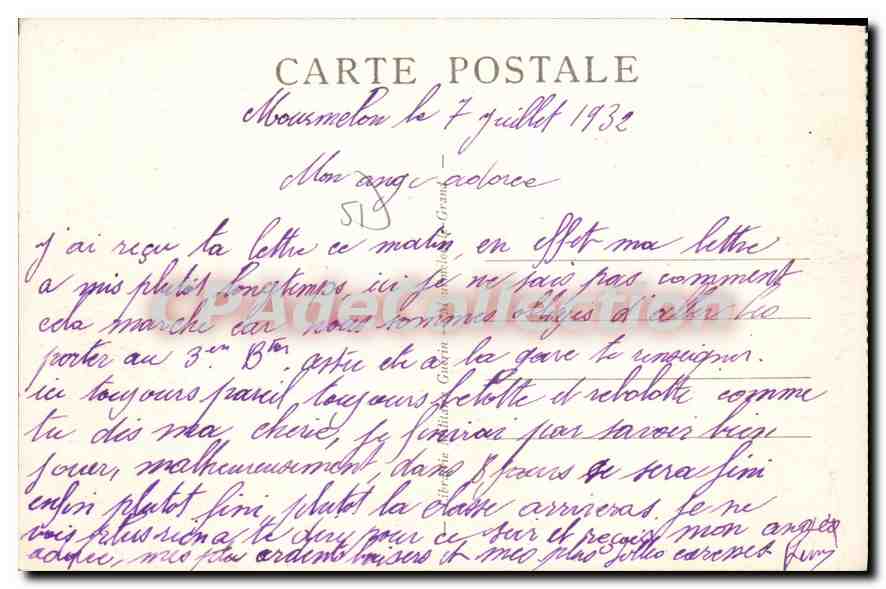 CARTE POSTALE
Mourmelon le 7 Juillet 1932
Mon ange adorée
515
j'ai reçu ta lettre ce matin, en effet ma lettre
a mis plutôt longtemps, ici je ne sais pas comment
cela marche car nous sommes obligés d'aller les
porter au 3em Bton. a la gare te renseigner.
ici toujours pareil toujours belotte et rebelotte comme
tu dis ma cherie, je finirai par savoir bien
jouer, malheureusement, dans 8 jours se sera fini
enfin plutot fini, plutot la classe arriveras je ne
vois plus rien a te dire pour ce soir et reçois mon ange
adorée, mes plus ardents baisers et mes plus jolies caresses
Librairie Militaire Guérin - Mourmelon-le-Grand
CPAdeCollection